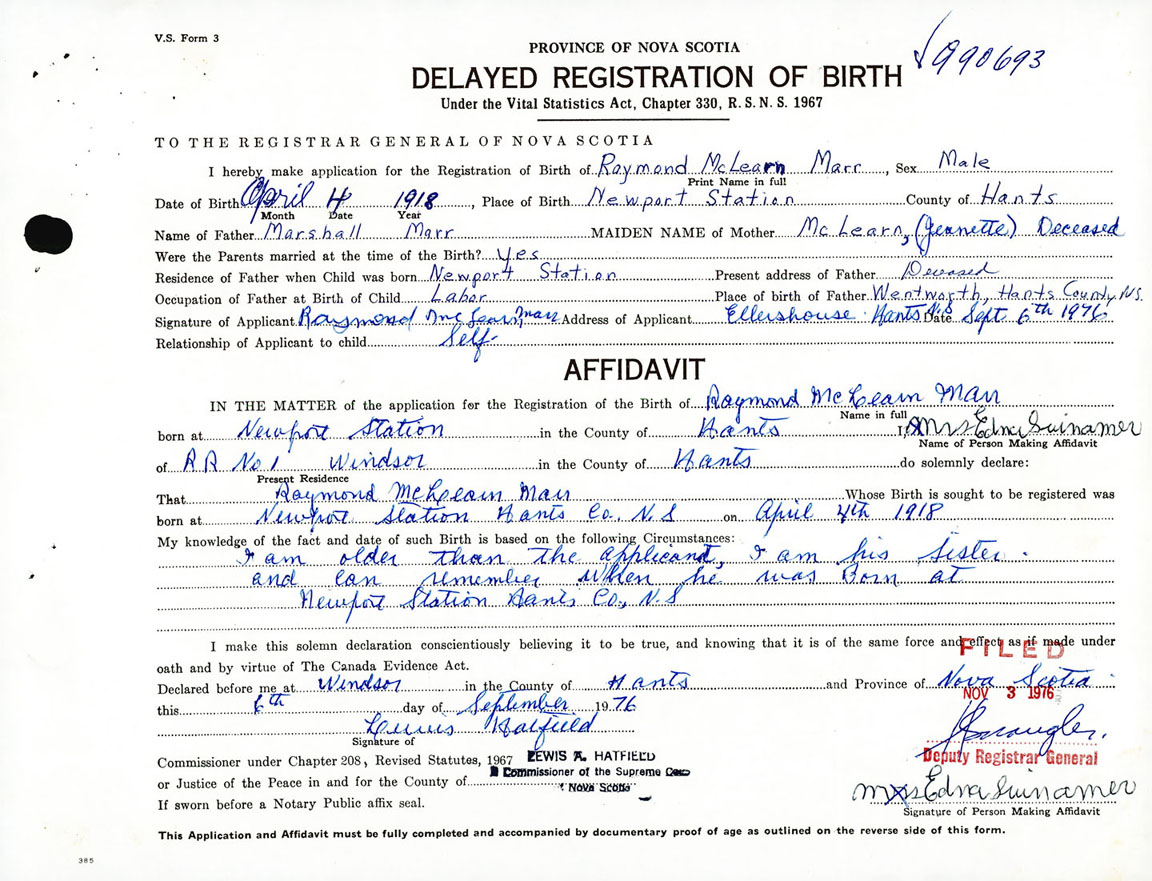 V.S. Form 3
990693
PROVINCE OF NOVA SCOTIA
DELAYED REGISTRATION OF BIRTH
Under the Vital Statistics Act, Chapter 330, R.S.N.S. 1967
TO THE REGISTRAR GENERAL OF NOVA SCOTIA
I hereby make application for the Registration of Birth of Raymond McLearn Marr, Sex Male
Print Name in full
Date of Birth April 4 1918, Place of Birth Newport Station County of Hants
Month Date Year
Name of Father Marshall Marr MAIDEN NAME of Mother McLearn, (Jeanette) Deceased
Were the Parents married at the time of the Birth? Yes
Residence of Father when Child was born Newport Station Present address of Father Deceased
Occupation of Father at Birth of Child Labor Place of birth of Father Wentworth, Hants County, N.S.
Signature of Applicant Raymond McLearn Marr Address of Applicant Ellershouse Hants N.S Date Sept 6th 1976
Relationship of Applicant to child Self
AFFIDAVIT
IN THE MATTER of the application for the Registration of the Birth of Raymond McLearn Marr
Name in full
born at Newport Station in the County of Hants I, Mrs Edna
Name of Person Making Affidavit
of RR No 1 Windsor in the County of Hants do solemnly declare:
Present Residence
That Raymond McLearn Marr Whose Birth is sought to be registered was
born at Newport Station Hants Co. N.S on April 4th 1918
My knowledge of the fact and date of such Birth is based on the following Circumstances:
I am older than the applicant, I am his sister.
and can remember when he was born at
Newport Station Hants Co., N.S
I make this solemn declaration conscientiously believing it to be true, and knowing that it is of the same force and effect as if made under
FILED
oath and by virtue of The Canada Evidence Act.
Declared before me at Windsor in the County of Hants and Province of Nova Scotia
NOV 3 1976
this 6th day of September 1976
Lewis Hatfield
Signature of
Commissioner under Chapter 208, Revised Statutes, 1967 LEWIS A. HATFIELD
Deputy Registrar General
or Justice of the Peace in and for the County of A Commissioner of the Supreme
Nova Scotia
If sworn before a Notary Public affix seal.
Mrs Edna
Signature of Person Making Affidavit
This Application and Affidavit must be fully completed and accompanied by documentary proof of age as outlined on the reverse side of this form.
385